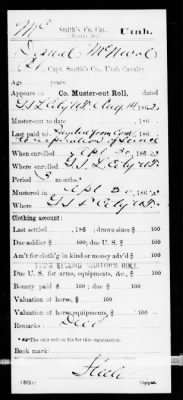 Mc Smith's Co. Cav. Utah.
Daniel McNeal
Pt., Capt. Smith's Co., Utah Cavalry.
Age years.
Appears on Co. Muster-out Roll, dated
G.S.L. City U.T. Aug 14, 1862.
Muster-out to date , 186 .
Last paid to from Com
to expiration of Service
When enrolled Apl 30, 1862
Where G.S.L. City U.T.
Period 3 months.
Mustered in Apl 30, 1862
Where G.S.L. City U.T.
Clothing account:
Last settled , 186 ; drawn since $ 100
Due soldier $ 100; due U. S. $ 100
Am't for cloth'g in kind or money adv'd $ 100
Due U. S. for arms, equipments, &c., $ 100
Bounty paid $ 100; due $ 100
Valuation of horse, $ 100
Valuation of horse equipments, $ 100
Remarks:
Book mark:
(361c) Copyist.